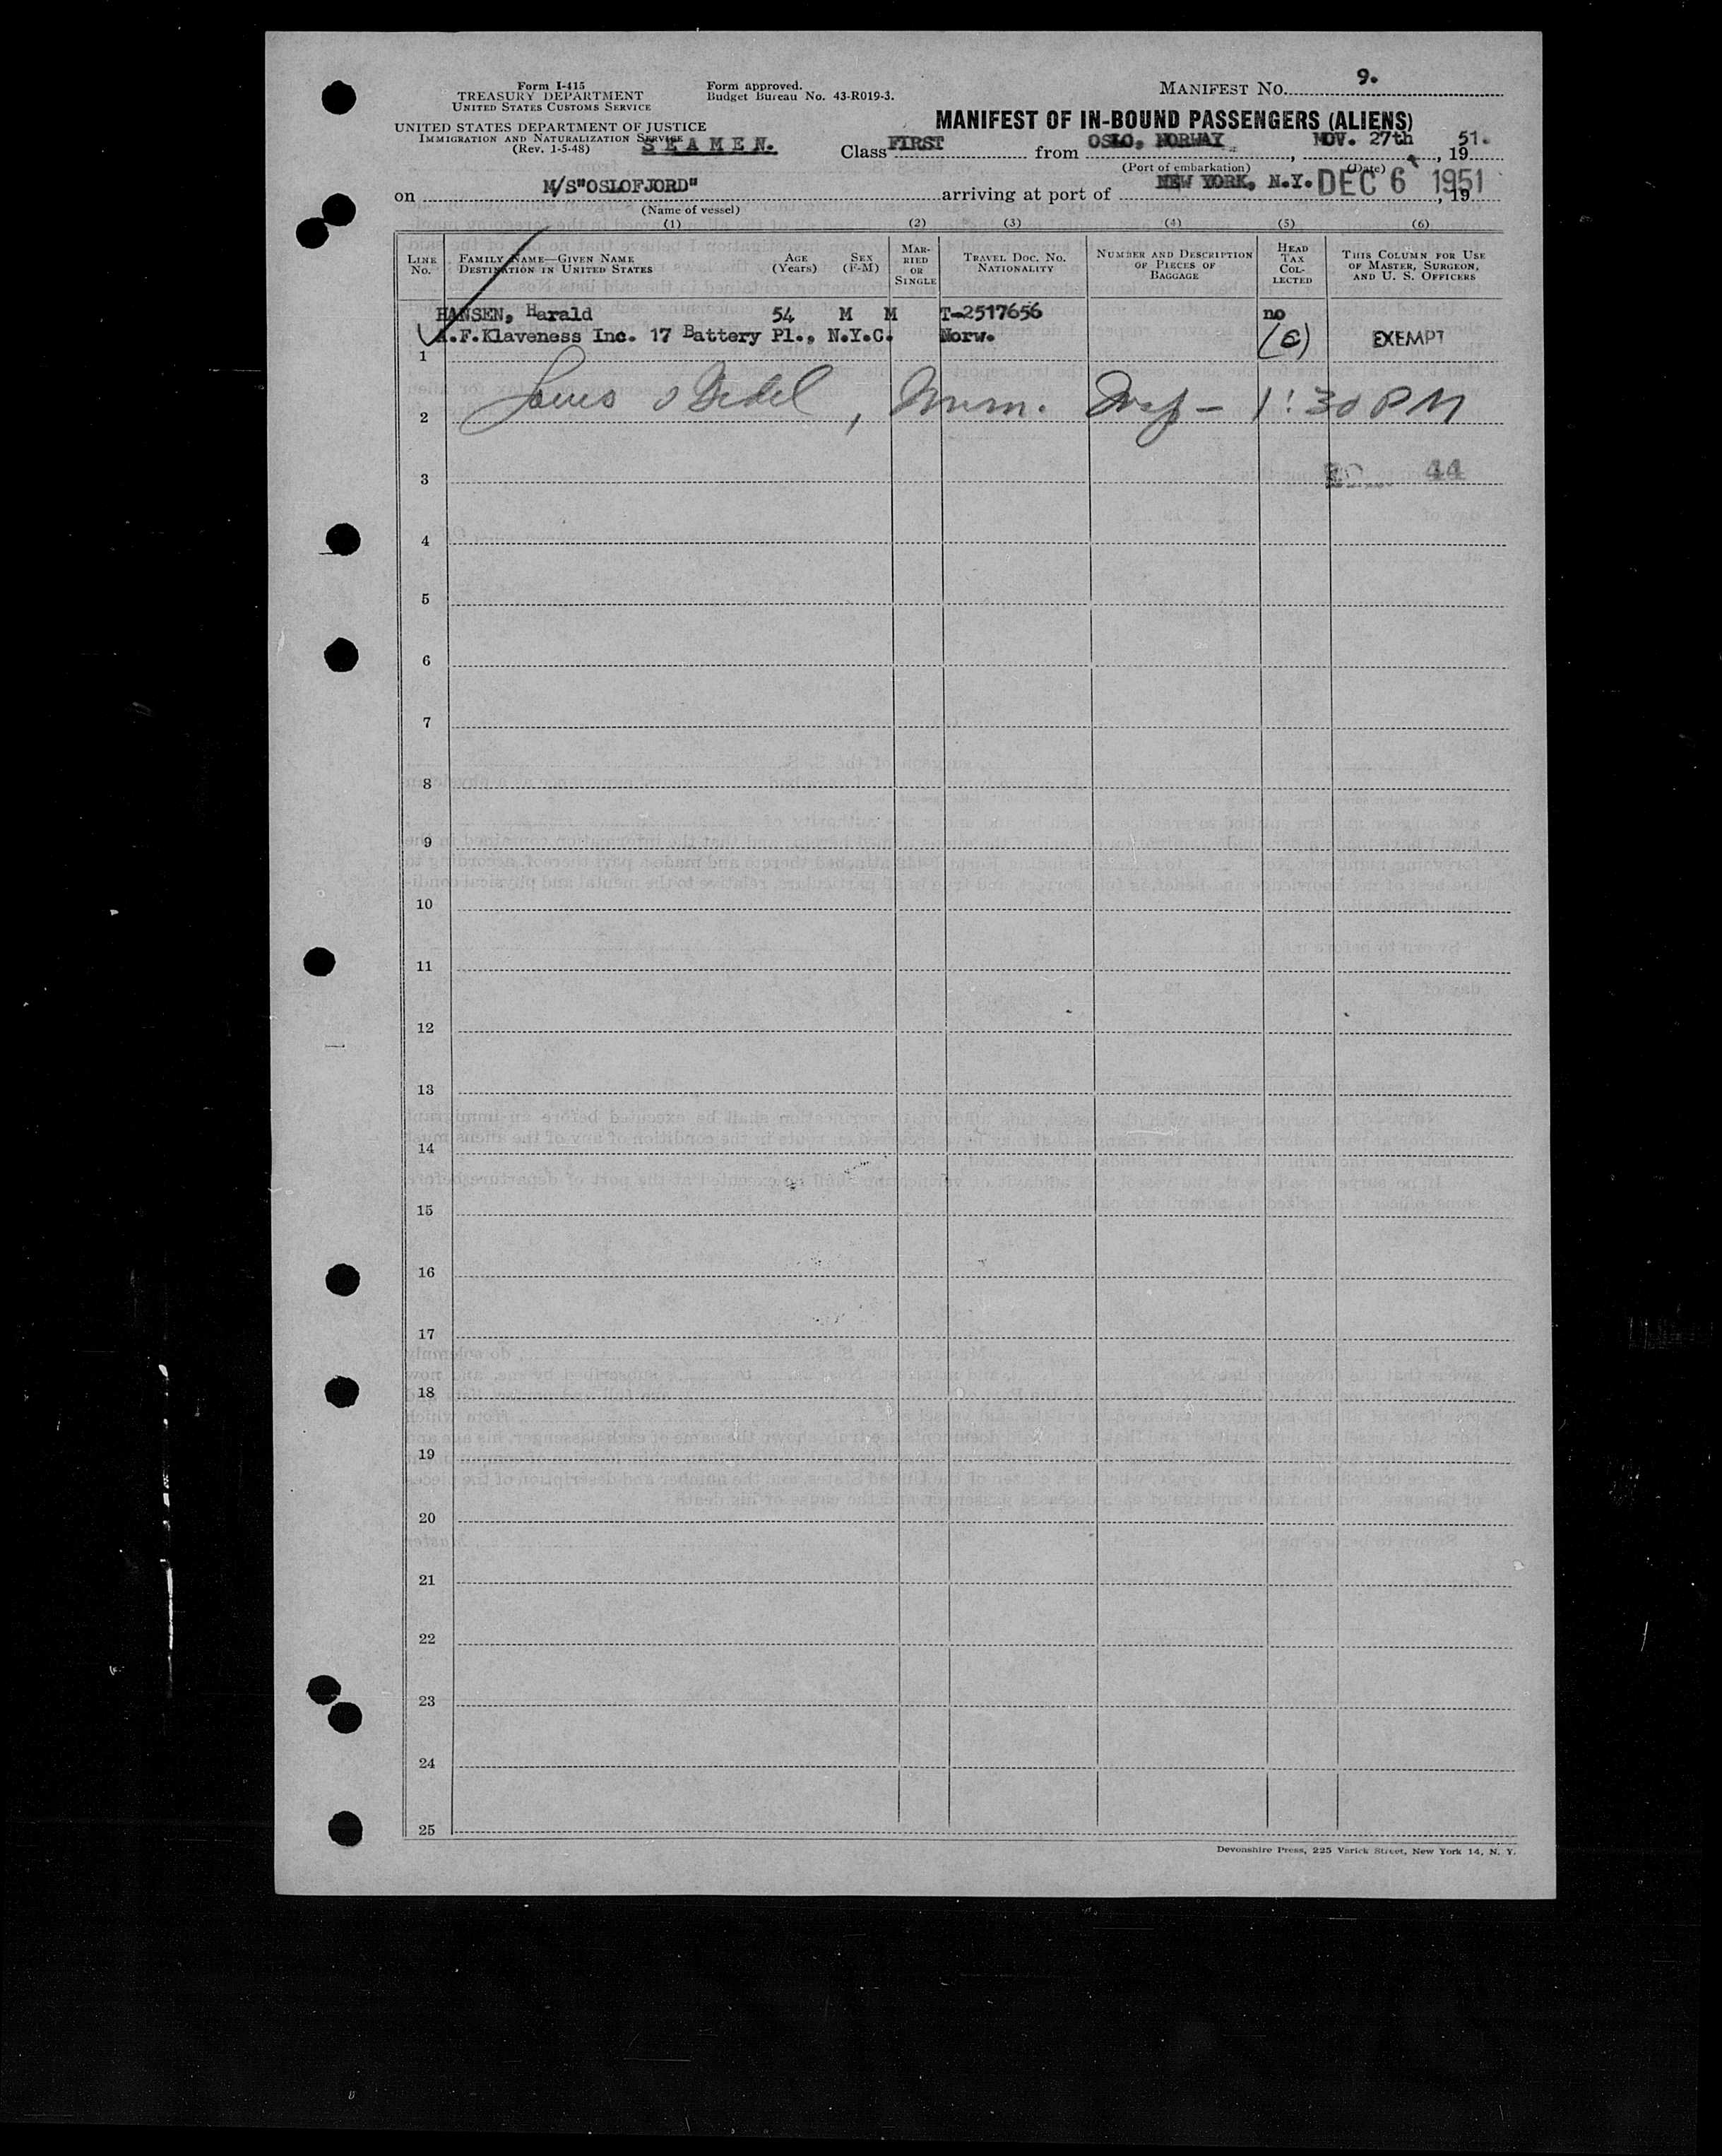 Form I-415
TREASURY DEPARTMENT
UNITED STATES CUSTOMS SERVICE
Form approved.
Budget Bureau No. 43-R019-3.
MANIFEST NO. 9.
UNITED STATES DEPARTMENT OF JUSTICE
IMMIGRATION AND NATURALIZATION SERVICE
(Rev. 1-5-48)
SEAMEN.
MANIFEST OF IN-BOUND PASSENGERS (ALIENS)
Class FIRST from OSLO, NORWAY, NOV. 27th, 19 51.
(Port of embarkation) (Date)
on M/S"OSLOFJORD" arriving at port of NEW YORK, N.Y. DEC 6 1951, 19
(Name of vessel)
(1) (2) (3) (4) (5) (6)
LINE NO.
FAMILY NAME—GIVEN NAME
DESTINATION IN UNITED STATES
AGE (Years)
SEX (F-M)
MARRIED OR SINGLE
TRAVEL DOC. NO. NATIONALITY
NUMBER AND DESCRIPTION OF PIECES OF BAGGAGE
HEAD TAX COLLECTED
THIS COLUMN FOR USE OF MASTER, SURGEON, AND U. S. OFFICERS
HANSEN, Harald 54 M M T-2517656 no
1 A.F.Klaveness Inc. 17 Battery Pl., N.Y.C. Norw. EXEMPT
2 Imm. Insp - 1:30 PM
3 44
4
5
6
7
8
9
10
11
12
13
14
15
16
17
18
19
20
21
22
23
24
25
Devonshire Press, 225 Varick Street, New York 14, N. Y.